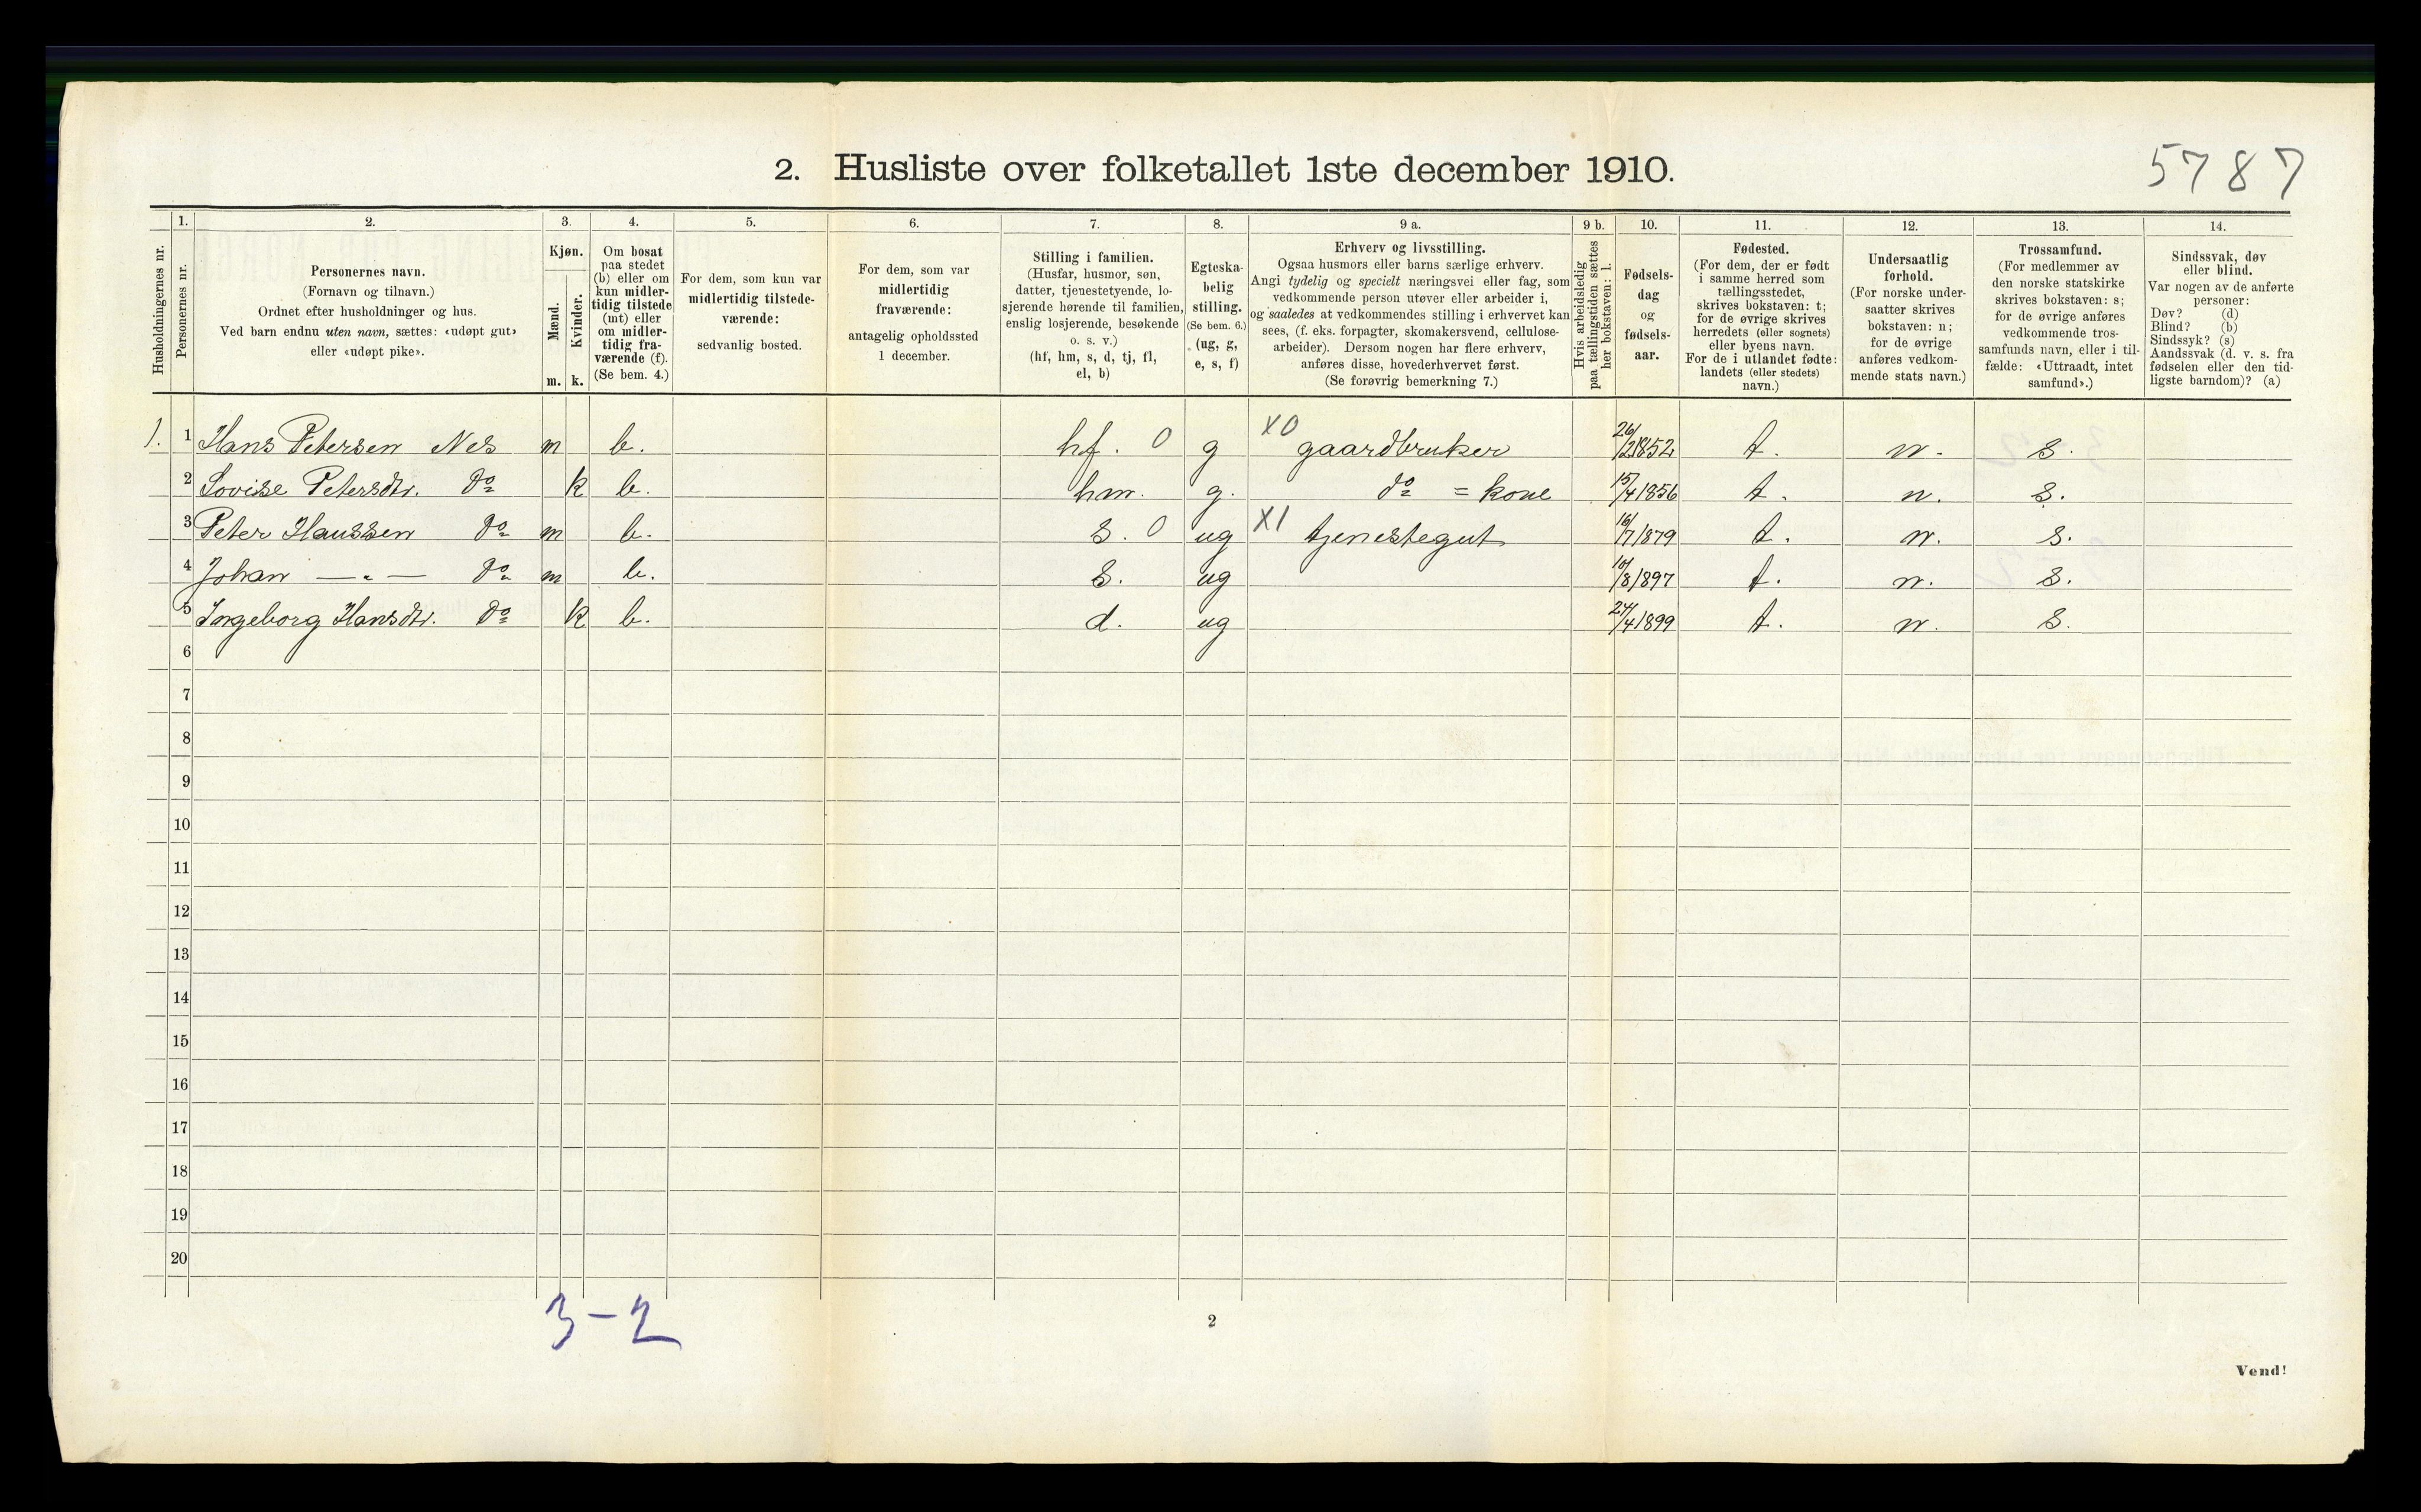 5787
2. Husliste over folketallet 1ste december 1910.
Husholdningernes nr.
1.
Personernes nr.
2.
Personernes navn.
(Fornavn og tilnavn.)
Ordnet efter husholdninger og hus.
Ved barn endnu uten navn, sættes: «udøpt gut»
eller «udøpt pike».
3.
Kjøn.
Mænd.
Kvinder.
m. k.
4.
Om bosat
paa stedet
(b) eller om
kun midler-
tidig tilstede
(mt) eller
om midler-
tidig fra-
værende (f).
(Se bem. 4.)
5.
For dem, som kun var
midlertidig tilstede-
værende:
sedvanlig bosted.
6.
For dem, som var
midlertidig
fraværende:
antagelig opholdssted
1 december.
7.
Stilling i familien.
(Husfar, husmor, søn,
datter, tjenestetyende, lo-
sjerende hørende til familien,
enslig losjerende, besøkende
o. s. v.)
(hf, hm, s, d, tj, fl,
el, b)
8.
Egteska-
belig
stilling.
(Se bem. 6.)
(ug, g,
e, s, f)
9 a.
Erhverv og livsstilling.
Ogsaa husmors eller barns særlige erhverv.
Angi tydelig og specielt næringsvei eller fag, som
vedkommende person utøver eller arbeider i,
og saaledes at vedkommendes stilling i erhvervet kan
sees, (f. eks. forpagter, skomakersvend, cellulose-
arbeider). Dersom nogen har flere erhverv,
anføres disse, hovederhvervet først.
(Se forøvrig bemerkning 7.)
9 b.
Hvis arbeidsledig
paa tællingstiden sættes
her bokstaven: l.
10.
Fødsels-
dag
og
fødsels-
aar.
11.
Fødested.
(For dem, der er født
i samme herred som
tællingsstedet,
skrives bokstaven: t;
for de øvrige skrives
herredets (eller sognets)
eller byens navn.
For de i utlandet fødte:
landets (eller stedets)
navn.)
12.
Undersaatlig
forhold.
(For norske under-
saatter skrives
bokstaven: n;
for de øvrige
anføres vedkom-
mende stats navn.)
13.
Trossamfund.
(For medlemmer av
den norske statskirke
skrives bokstaven: s;
for de øvrige anføres
vedkommende tros-
samfunds navn, eller i til-
fælde: «Uttraadt, intet
samfund».)
14.
Sindssvak, døv
eller blind.
Var nogen av de anførte
personer:
Døv? (d)
Blind? (b)
Sindssyk? (s)
Aandssvak (d. v. s. fra
fødselen eller den tid-
ligste barndom)? (a)
1. 1 Hans Petersen Nes m b. hf. 0 g X0 gaardbruker 26/2 1852 t. n. s.
2 Lovise Petersdtr. do k b. hm. g. do = kone 15/4 1856 t. n. s.
3 Peter Hanssen do m b. s. 0 ug X1 tjenestegut 16/7 1879 t. n. s.
4 Johan — „ — do m b. s. ug 10/8 1897 t. n. s.
5 Ingeborg Hansdtr. do k b. d. ug 24/4 1899 t. n. s.
6
7
8
9
10
11
12
13
14
15
16
17
18
19
20
3-2
2
Vend!